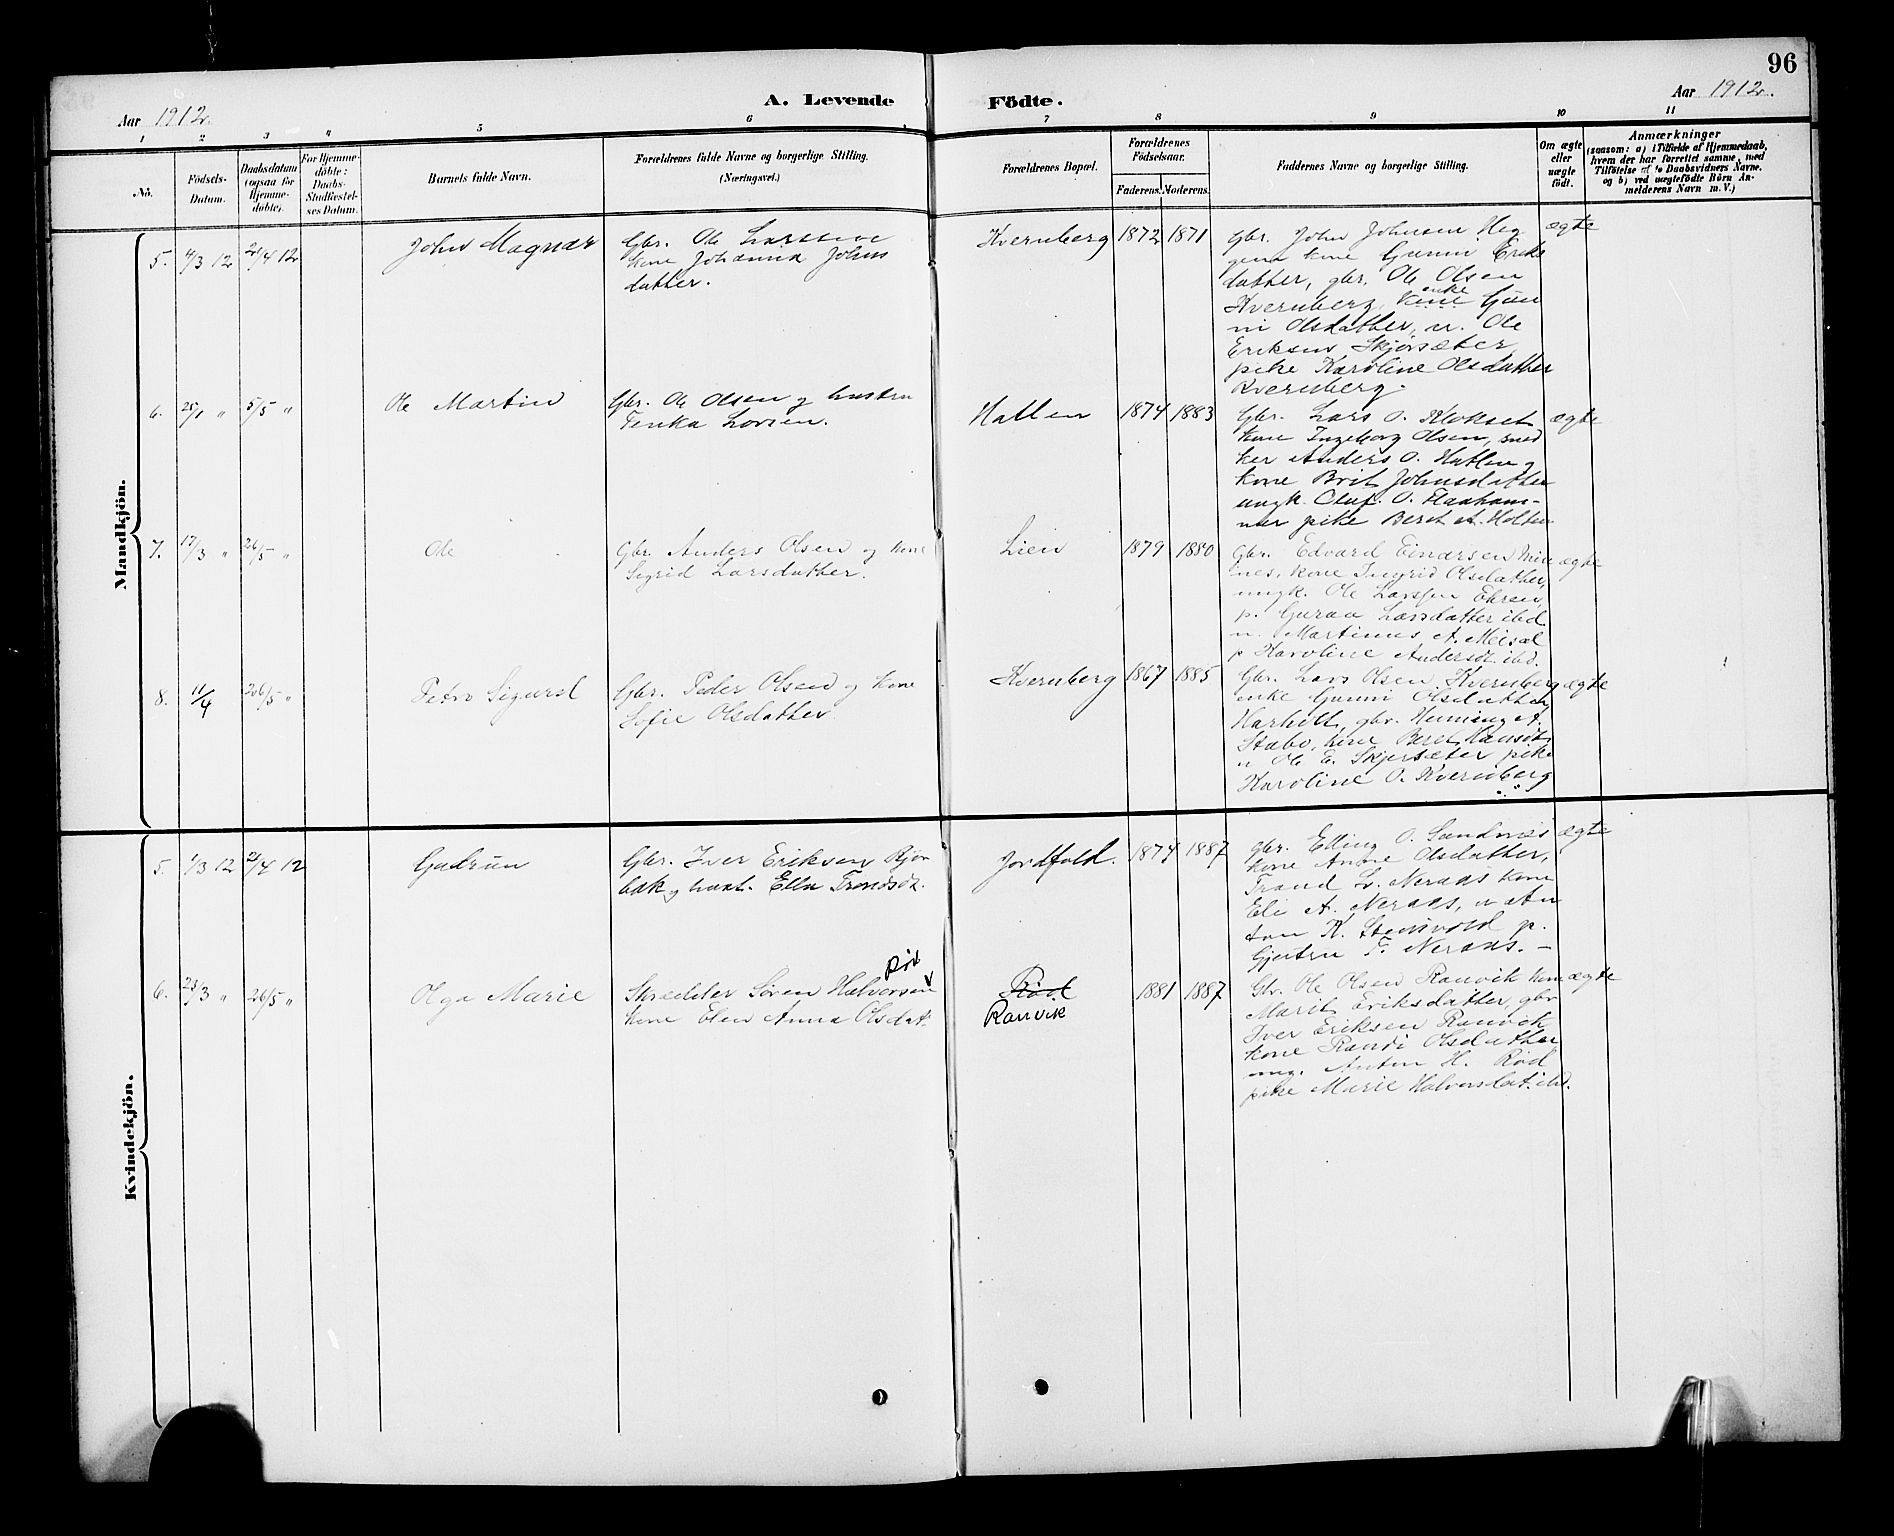 96
Aar 1912.
A. Levende Födte.
Aar 1912.
1 2 3 4 5 6 7 8 9 10 11
No.
Födsels-Datum.
Daabsdatum (ogsaa for Hjemmedöbte).
For Hjemmedöbte: Daabs-Stadfæstelses Datum.
Barnets fulde Navn.
Forældrenes fulde Navne og borgerlige Stilling. (Næringsvei.)
Forældrenes Bopæl.
Forældrenes Födselsaar.
Faderens. Moderens.
Faddernes Navne og borgerlige Stilling.
Om ægte eller uægte födt.
Anmærkninger
(saasom: a) i Tilfælde af Hjemmedaab,
hvem der har forrettet samme, med
Tilföielse af to Daabsvidners Navne,
og b) ved uægtefödte Börn An-
melderens Navn m. V.)
Mandkjön.
5. 4/3 12 21/4 12 John Magnar
Gbr. Ole Larssen
kone Johanna Johns
datter.
Kvernberg 1872 1871
Gbr. John Johnsen Heg
gem kone Gunni Eriks
datter, gbr. Ole Olsen
Kvernberg, kone enke Gun
ni Olsdatter, u. Ole
Eriksen Skjørsæter
pike Karoline Olsdatter
Kvernberg.
ægte
6. 25/1 " 5/5 " Ole Martin
Gbr. Ole Olsen og hustru
Larsen.
Hatlen 1874 1883
Gbr. Lars O. Klokset
kone Ingeborg Olsen, sned
ker Anders O. Hatlen og
kone Brit Johnsdatter
ungk. Oluf O. Flaaham-
mer pike Beret A. Hatlen
ægte
7. 17/3 " 26/5 " Ole
Gbr. Anders Olsen og kone
Sigrid Larsdatter.
Lien 1879 1880
Gbr. Edvard Einarsen
nes, kone Ingrid Olsdatter,
ungk. Ole Larssen
p. Guraa Larsdatter ibd.
u. Martinus A. Meisal
p Karoline Andersdt. ibd.
ægte
8. 11/4 26/5 " Petro Sigurd
Gbr. Peder Olsen og kone
Sofie Olsdatter
Kvernberg 1867 1885
Gbr. Lars Olsen, Kvernberg
enke Gunni Olsdatter
gbr. Henning A.
Stabo, kone Beret Hansdt.
u Ole E. Skjørsæter pike
Karoline O. Kvernberg
ægte
Kvindekjön.
5. 1/3 12 21/4 12 Gudrun
Gbr. Iver Eriksen Bjør
bak og hust. Ella Trondsdt.
Jordfald. 1874 1887
gbr. Elling O. Sandnes
kone Anne Olsdatter,
Trond L. Neraas kone
Eli A. Neraas, u An
ton K. Steinvold p.
Gjertru T. Neraas. —
ægte
6. 23/3 " 26/5 " Olga Marie
Rød
Skrædder Søren Halvorsen
kone Elen Anna Olsdat.
Rød
Ranvik
1881 1887
Gbr. Ole Olsen Ranvik kone
Marit Eriksdatter, gbr
Iver Eriksen Ranvik
kone Randi Olsdatter
ung. Anton H. Rød
pike Marie Halvorsdat. ibd.
ægte